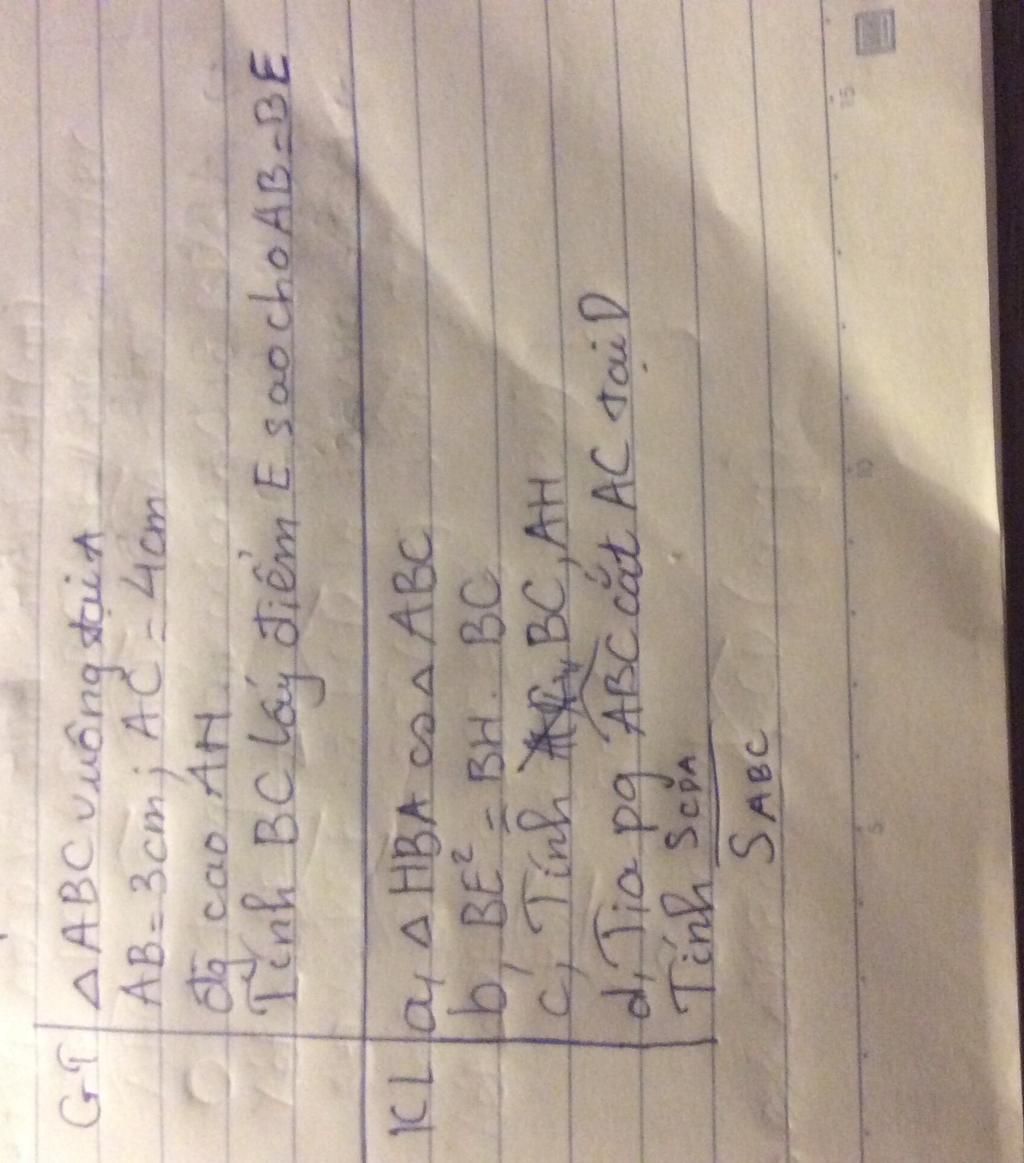 GT △ABC vuông tại A
AB = 3cm; AC = 4cm
đg cao AH
Tính BC lấy điểm E sao cho AB = BE
KL a, △HBA ∽ △ABC
b, BE² = BH. BC
c, Tính BC, AH
d, Tia pg ABC cắt AC tại D
Tính SCDA
SABC
5
10
15